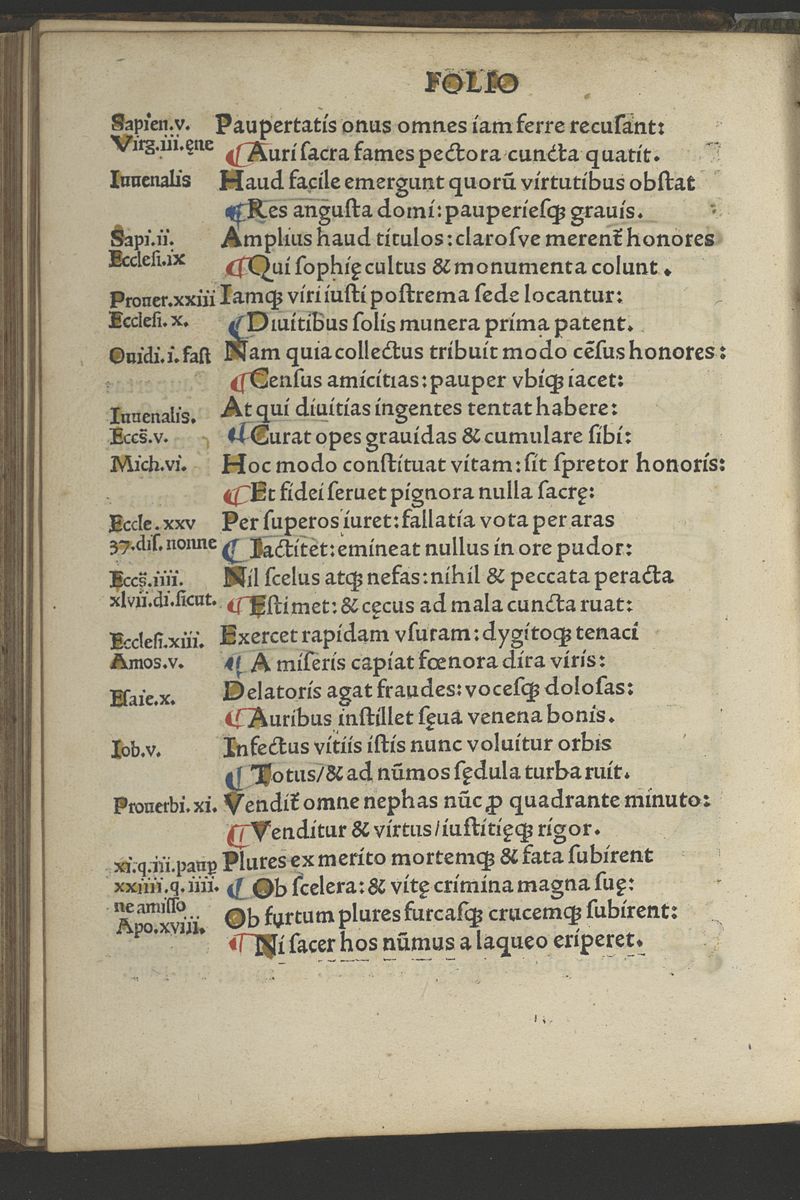 FOLIO
Sapien.v. Paupertatis onus omnes iam ferre recuſant:
Virg.iii.ęne ¶ Auri ſacra fames pectora cuncta quatit.
Iuuenalis Haud facile emergunt quorū virtutibus obſtat
¶ Res anguſta domi: pauperieſqꝫ grauis.
Sapi.ii. Amplius haud titulos: claroſve merent᷑ honores
Eccleſi.ix ¶ Qui ſophię cultus & monumenta colunt.
Prouer.xxiii Iamqꝫ viri iuſti poſtrema ſede locantur:
Eccleſi.x. ¶ Diuitibus ſolis munera prima patent.
Ouidi.i.faſt Nam quia collectus tribuit modo cēſus honores:
¶ Cenſus amicitias: pauper vbiqꝫ iacet:
Iuuenalis. At qui diuitias ingentes tentat habere:
Eccs̄.v. ¶ Curat opes grauidas & cumulare ſibi:
Mich.vi. Hoc modo conſtituat vitam: ſit ſpretor honoris:
¶ Et fidei ſeruet pignora nulla ſacrę:
Eccle.xxv Per ſuperos iuret: fallatia vota per aras
37.diſ.nonne ¶ Iactitet: emineat nullus in ore pudor:
Eccs̄.iiii. Nil ſcelus atqꝫ nefas: nihil & peccata peracta
xlvii.di.ſicut. ¶ Eſtimet: & cęcus ad mala cuncta ruat:
Eccleſi.xiii. Exercet rapidam vſuram: dygitoqꝫ tenaci
Amos.v. ¶ A miſeris capiat fœnora dira viris:
Eſaie.x. Delatoris agat fraudes: voceſqꝫ doloſas:
¶ Auribus inſtillet ſęua venena bonis.
Iob.v. Infectus vitiis iſtis nunc voluitur orbis
¶ Totus/& ad nūmos ſędula turba ruit.
Prouerbi.xi. Vendit᷑ omne nephas nūc ꝓ quadrante minuto:
¶ Venditur & virtus/iuſtitięqꝫ rigor.
xi.q.iii.pauꝑ Plures ex merito mortemqꝫ & fata ſubirent
xxiiii.q.iiii. ¶ Ob ſcelera: & vitę crimina magna ſuę:
ne amiſſo Ob furtum plures furcaſqꝫ crucemqꝫ ſubirent:
Apo.xviii. ¶ Ni ſacer hos nūmus a laqueo eriperet.